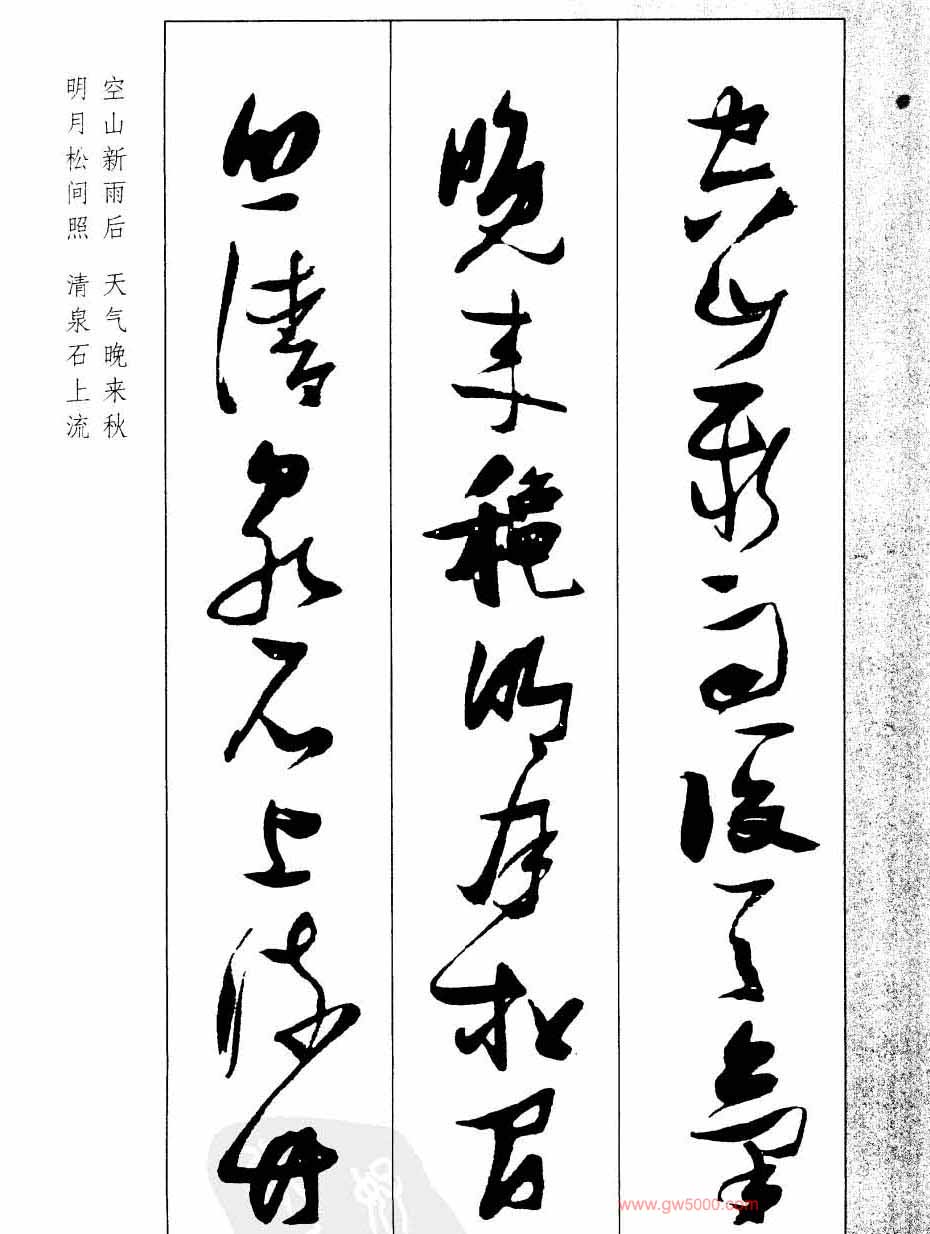 空山新雨後天氣
晚来秋明月松間
照清泉石上流竹
空山新雨后 天气晚来秋
明月松间照 清泉石上流
www.gw5000.com